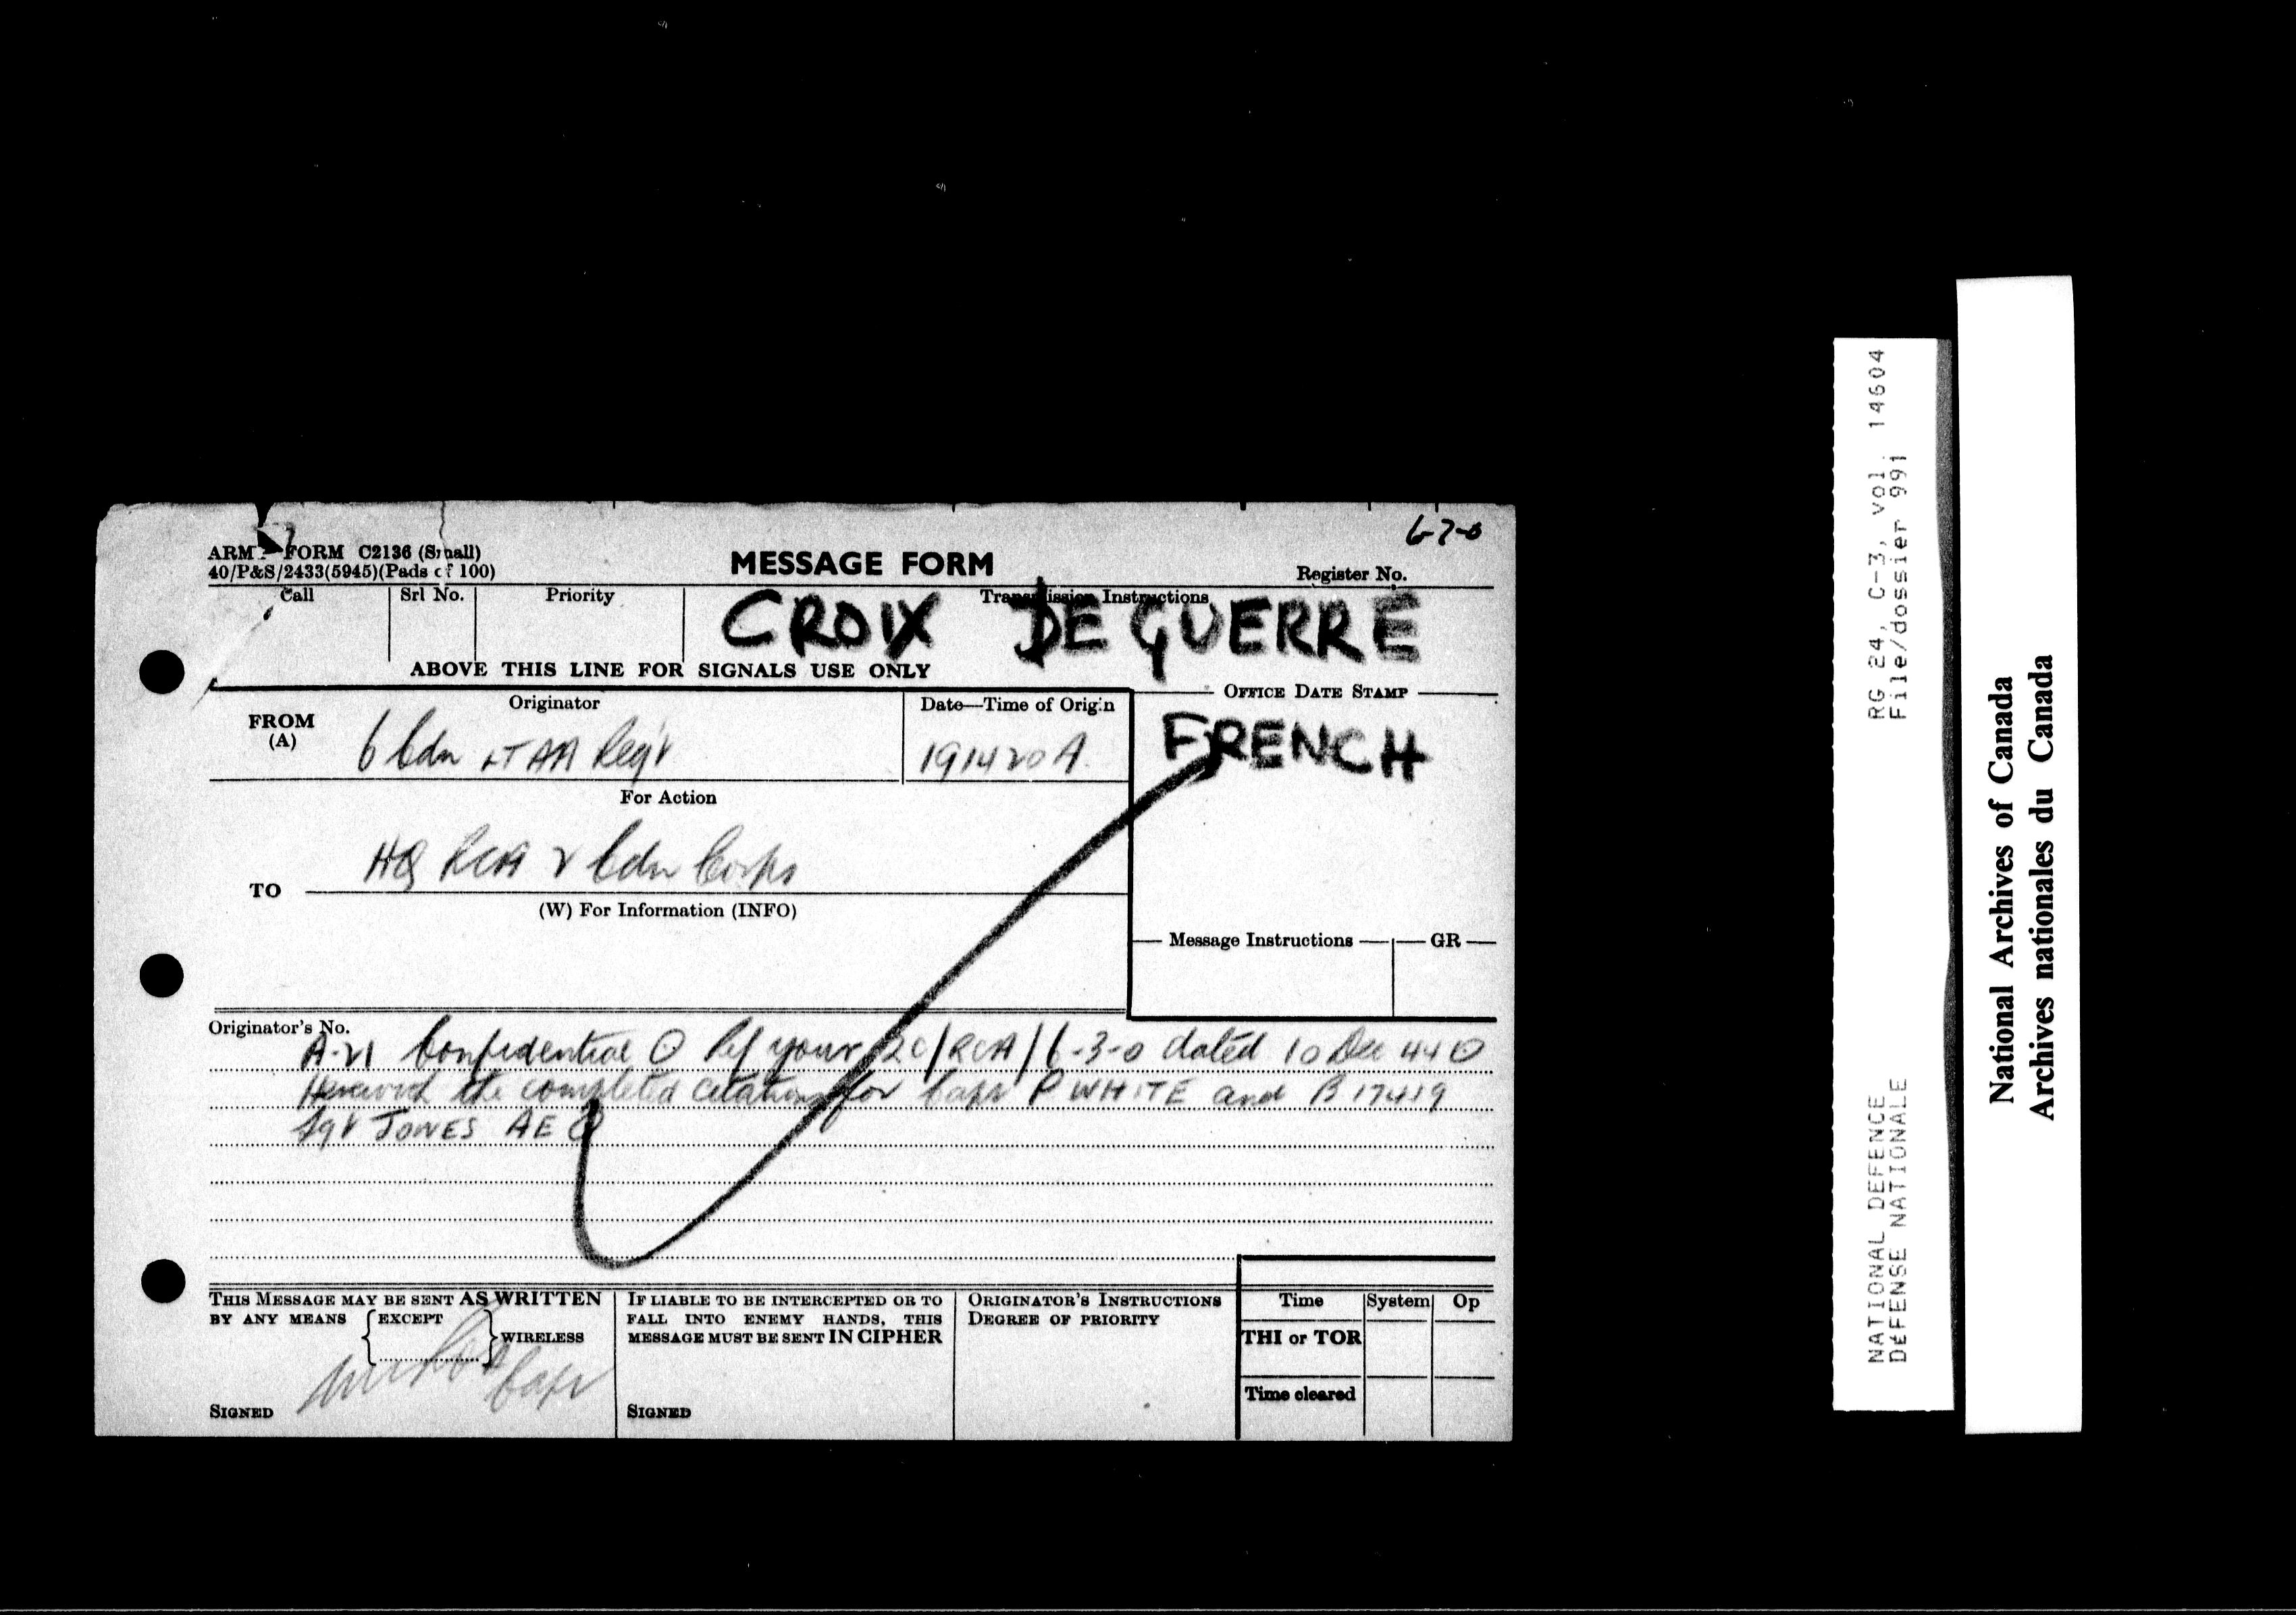 6-7-0
ARMY FORM C2136 (Small)
40/P&S/2433(5945)(Pads of 100)
MESSAGE FORM
Register No.
Call
Srl No.
Priority
Transmission Instructions
CROIX DE GUERRE
ABOVE THIS LINE FOR SIGNALS USE ONLY
FROM
(A)
Originator
6 Cdn LT AA Regt
Date—Time of Origin
191420A
OFFICE DATE STAMP
FRENCH
For Action
TO
HQ RCA 2 Cdn Corps
(W) For Information (INFO)
Message Instructions
GR
Originator's No.
A-21 Confidential O Ref your 2C/RCA/6-3-0 dated 10 Dec 44 O
Herewith the completed citations for Capt P WHITE and B17419
Sgt JONES AE O
THIS MESSAGE MAY BE SENT AS WRITTEN
BY ANY MEANS EXCEPT WIRELESS
Capt
SIGNED
IF LIABLE TO BE INTERCEPTED OR TO
FALL INTO ENEMY HANDS, THIS
MESSAGE MUST BE SENT IN CIPHER
SIGNED
ORIGINATOR'S INSTRUCTIONS
DEGREE OF PRIORITY
Time
System
Op
THI or TOR
Time cleared
RG 24, C-3, vol. 14604
File/dossier 991
NATIONAL DEFENCE
DEFENSE NATIONALE
National Archives of Canada
Archives nationales du Canada